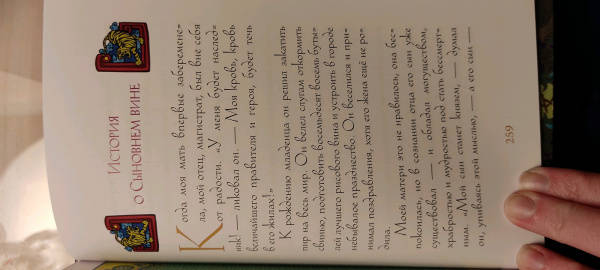 История
о Сыновнем вине
Когда моя мать впервые заберемене-
ла, мой отец, магистрат, был вне себя
от радости. «У меня будет наслед-
ник! — ликовал он. — Моя кровь, кровь
величайшего правителя и героя, будет течь
в его жилах!»
К рождению младенца он решил закатить
пир на весь мир. Он велел слугам откормить
свинью, подготовить восемьдесят восемь буты-
лей лучшего рисового вина и устроить в городе
небывалое празднество. Он веселился и при-
нимал поздравления, хотя его жена ещё не ро-
дила.
Моей матери это не нравилось, она бес-
покоилась, но в сознании отца его сын уже
существовал — и обладал могуществом,
храбростью и мудростью под стать бессмерт-
ным. «Мой сын станет князем, — думал
он, упиваясь этой мыслью, — а его сын —
259